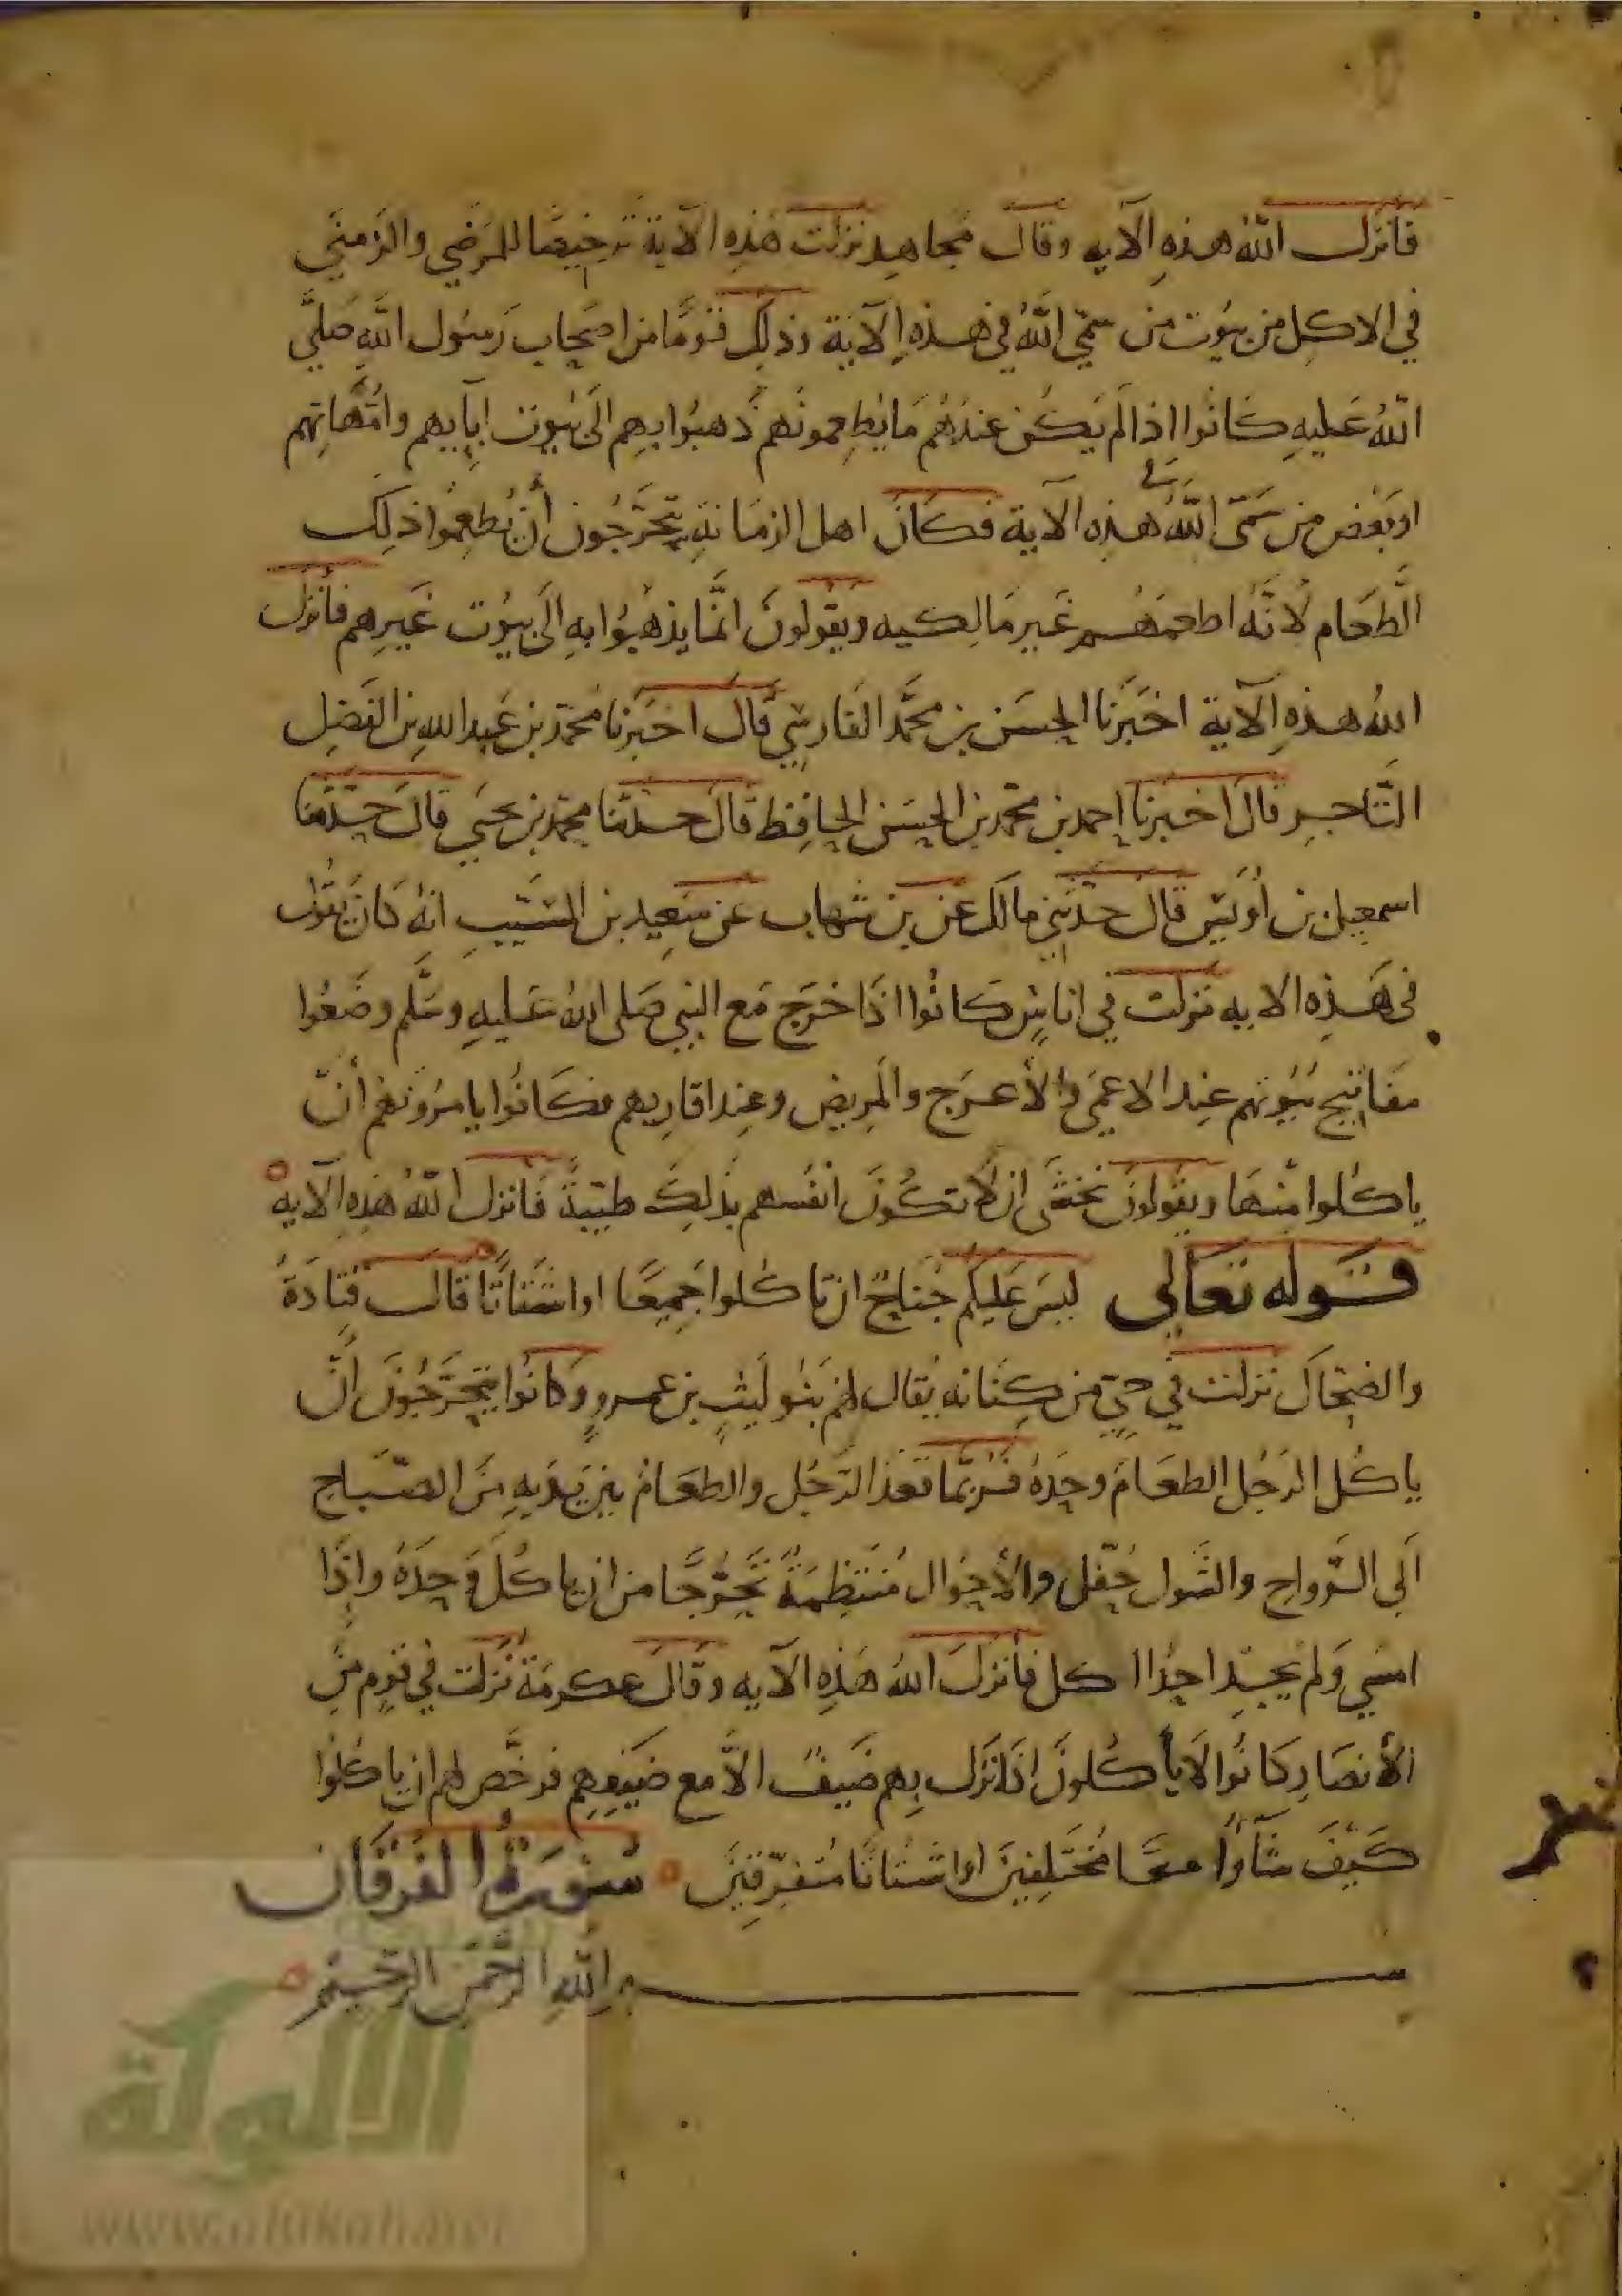 فانزل الله هذه الآيه وقال مجاهد نزلت هذه الآية ترخيصا للمرضي والزمني
في الاكل من بيوت من سمي الله في هذه الآية وذلك قومًا من اصحاب رسول الله صلي
الله عليه كانوا اذا لم يكن عندهم ما يطعمونهم ذهبوا بهم الي بيوت ابآيهم وامهاتهم
او بعض من سمّى الله هذه الآية فكان اهل الزمانة يتحرّجون أن يُطعموا ذلك
الطعام لانّه اطعمهم غير مالكيه ويقولون انّما يذهبوا به الى بيوت غيرهم فانزل
الله هذه الآية اخبرنا الحسن بن محمّد الفارسي قال اخبرنا محمد بن عبد الله بن الفضل
التّاجر قال اخبرنا احمد بن محمد بن الحسن الحافظ قال حدثنا محمد بن يحيي قال حدّثنا
اسمعيل بن أويس قال حدّثني مالك عن بن شهاب عن سعيد بن المسيّب انه كان يقول
في هذه الايه نزلت في اناسٍ كانوا اذا خرج مع النبي صلى الله عليه وسلّم وضعوا
مفاتيح بيوتهم عند الاعمي والأعرج والمريض وعند اقاربهم فكانوا يامرونهم أن
ياكلوا منها ويقولون نخشى ان لا تكون انفسهم بذلك طيّبةً فانزل الله هذه الآيه
قوله تعالي ليس عليكم جناحٌ ان تاكلوا جميعًا او اشتاتًا قال قتادة
والضحاك نزلت في حيّ من كنانه يقال لهم بنو ليث بن عمروٍ وكانوا يتحرّجون أنّ
ياكل الرجل الطعام وحده فربّما قعد الرّجل والطعام بين يديه من الصّباح
الي الرّواح والشول حفّل والأحوال منتظمةٌ تحرُّجًا من ان ياكل وحده واذا
امسي ولم يجد احدا اكل فانزل الله هذه الآيه وقال عكرمة نزلت في قومٍ من
الأنصار كانوا لا يأكلون اذا نزل بهم ضيفٌ الّا مع ضيفهم فرخّص لهم ان ياكلوا
كيف شآوا معًا مختلفين او اشتاتا متفرّقين سورة الفرقان
بسم الله الرّحمن الرّحيم
الألوكة
www.alukah.net